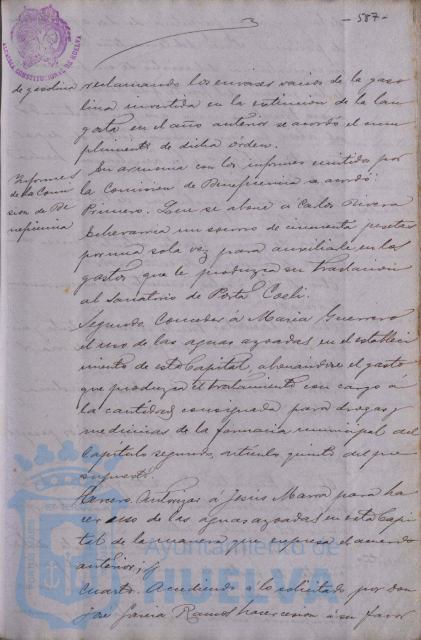 - 587 -
ALCALDIA CONSTITUCIONAL DE HUELVA
de gasolina
reclamando los envases vacios de la gaso
lina invertida en la extincion de la lan
gosta en el año anterior se acordó el cum
plimiento de dicha órden.
Informes
de la Comi
sion de Be
neficencia
En armonia con los informes emitidos por
la Comision de Beneficencia se acordó:
Primero. Que se abone á Carlos Rivera
Echevarria un socorro de cincuenta pesetas
por una sola vez para auxiliarle en los
gastos que le produzca su traslacion
al Sanatorio de Porta Coeli.
Segundo. Conceder á Maria Guerrero
el uso de las aguas azoadas en el estableci
miento de esta Capital, abonandose el gasto
que produzca el tratamiento con cargo a
la cantidad consignada para drogas y
medicinas de la farmacia municipal del
Capitulo segundo, articulo quinto del pre
supuesto.
Tercero. Autorizar á Jesus Marra para ha
cer uso de las aguas azoadas en esta Capi
tal de la manera que expresa el acuerdo
anterior; y
Cuarto. Accediendo á lo solicitado por don
José Garcia Ramos hacer cesion á su favor
Ayuntamiento de
HUELVA